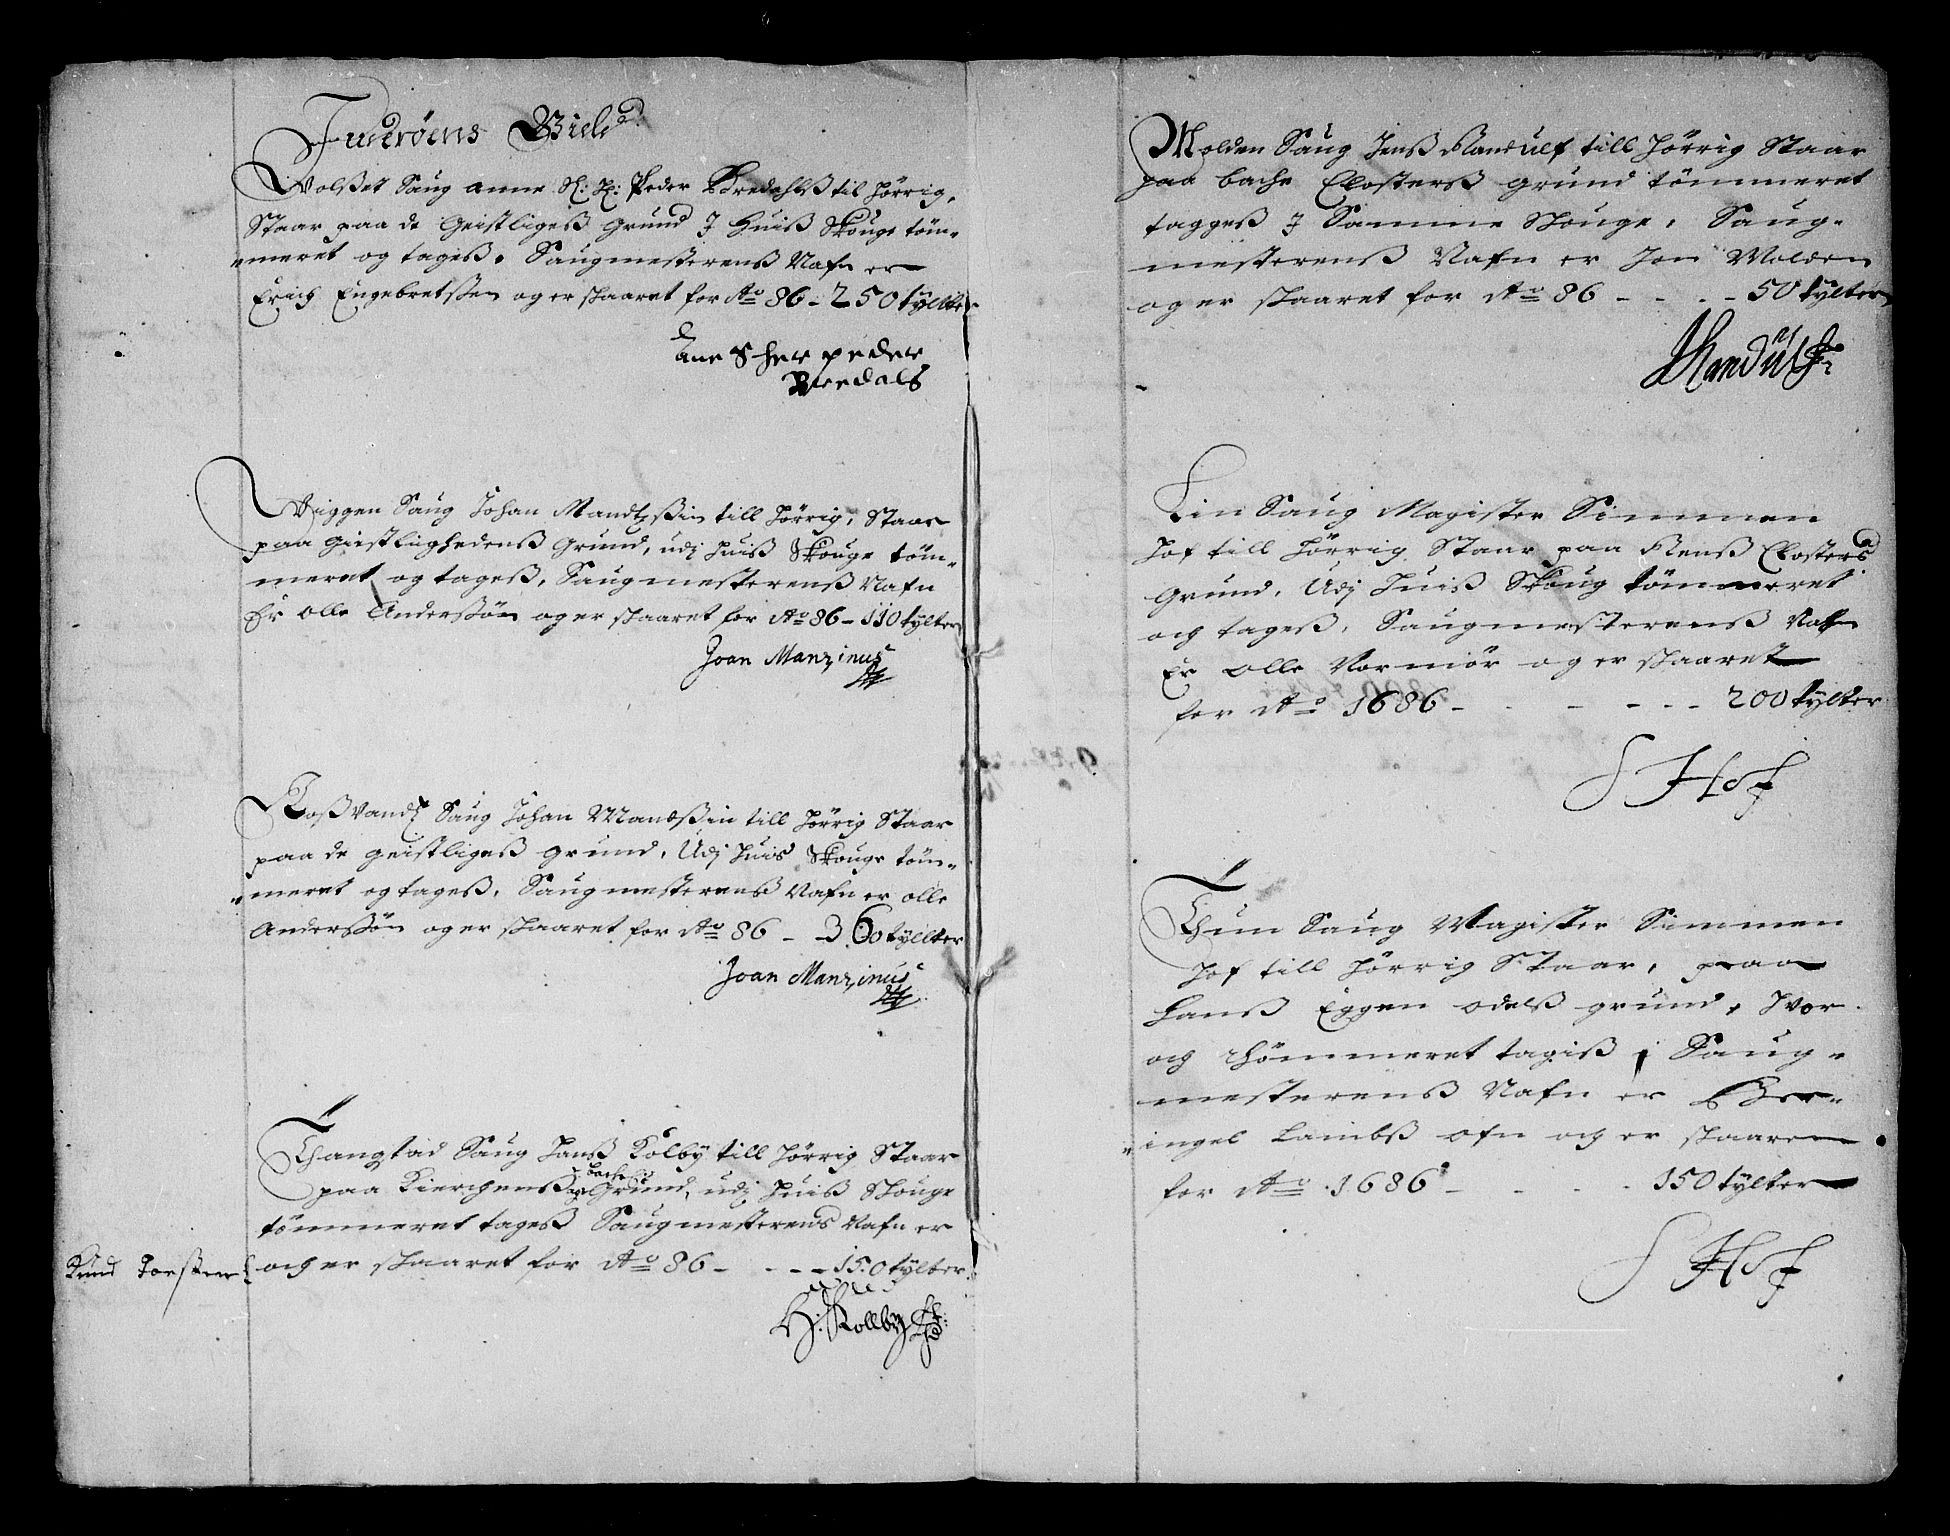 Inderöens Gield
Wolßet Saug Anne Sl: Hr: Peder Bredahlß til hörrig,
Staar paa de Geistligeß grund I huiß Skouge töm-
meret og tageß. Saugmesterenß Nafn er
Erich Engebretßen og er skaaret for Ao 86 - 250 tylter
Ane S her peder
Bredals
Viggen Saug Johan Mandtzßin till hörrig, Staar
paa Giestlighedenß Grund, udj huiß Skouge töm-
meret og tageß, Saugmesterenß Nafn
Er Olle Anderßön og er skaaret for Ao 86 - 110 tylter
Joan Manzinus
Saug Johan Mandßin till hörrig Staar
paa de geistligeß grund, Udj huiß Skouge töm-
meret og tageß, Saugmesterenß Nafn er olle
Anderßön og er skaaret for Ao 86 - 360 tyllter
Joan Manzinus
Thangstad Saug Hanß Kolby till hörrig Staar
paa Kierchenß Grund, udj huiß Skouge
bache
tömmeret tageß Saugmesterens Nafn er
Knud
og er skaaret for Ao 86 - - - - 150 tylter
H: Kollby
Molden Saug Jenß Randulf till hörrig Staar
paa bache Closterß grund tömmeret
taggeß I Samme Skouge, Saug-
mesterenß Nafn er Jon Molden
og er skaaret for Ao 86 - - - - 50 tylter
JRandulf
Lin Saug Magister Simmen
Hof till hörrig Staar paa Renß Closters
Grund, Udj huiß Skoug tömmeret
och tageß, Saugmesterenß Nafn
Er Olle Vormör og er skaaret
for Ao 1686 - - - - - 200 tylter
S Hof
Thun Saug Magister Simmen
Hof till hörrig Staar, paa
Hanß Eggen odelß grund, Hvor
och thömmeret tagiß i Saug-
mesterenß Nafn er
ingel Lambß ofn och er skaaren
for Ao 1686 - - - - 150 tylter
S Hof